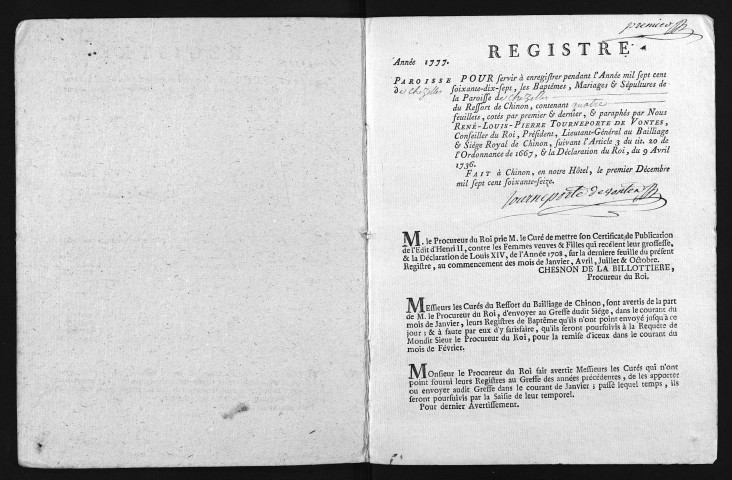 premier
REGISTRE.
Année 1777.
PAROISSE
de chezelles
POUR servir à enregistrer pendant l'Année mil sept cent
soixante-dix-sept, les Baptêmes, Mariages & Sépultures de
la Paroisse de chezelles
du Ressort de Chinon, contenant quatre
feuillets, cotés par premier & dernier, & paraphés par Nous
RENÉ-LOUIS-PIERRE TOURNEPORTE DE VONTES,
Conseiller du Roi, Président, Lieutant-Général au Bailliage
& Siége Royal de Chinon, suivant l'Article 3 du tit. 20 de
l'Ordonnance de 1667, & la Déclaration du Roi, du 9 Avril
1736.
FAIT à Chinon, en notre Hôtel, le premier Décembre
mil sept cent soixante-seize.
Tourneporte de vontes
M. le Procureur du Roi prie M. le Curé de mettre son Certificat de Publication
de l'Edit d'Henri II, contre les Femmes veuves & Filles qui recélent leur grossesse,
& la Déclaration de Louis XIV, de l'Année 1708, sur la derniere feuille du présent
Registre, au commencement des mois de Janvier, Avril, Juillet & Octobre.
CHESNON DE LA BILLOTTIERE,
Procureur du Roi.
Messieurs les Curés du Ressort du Bailliage de Chinon, sont avertis de la part
de M. le Procureur du Roi, d'envoyer au Greffe dudit Siége, dans le courant du
mois de Janvier, leurs Registres de Baptême qu'ils n'ont point envoyé jusqu'à ce
jour; & à faute par eux d'y satisfaire, qu'ils seront poursuivis à la Requête de
Mondit Sieur le Procureur du Roi, pour la remise d'iceux dans le courant du
mois de Février.
Monsieur le Procureur du Roi fait avertir Messieurs les Curés qui n'ont
point fourni leurs Registres au Greffe des années précédentes, de les apporter
ou envoyer audit Greffe dans le courant de Janvier; passé lequel temps, ils
seront poursuivis par la Saisie de leur temporel.
Pour dernier Avertissement.